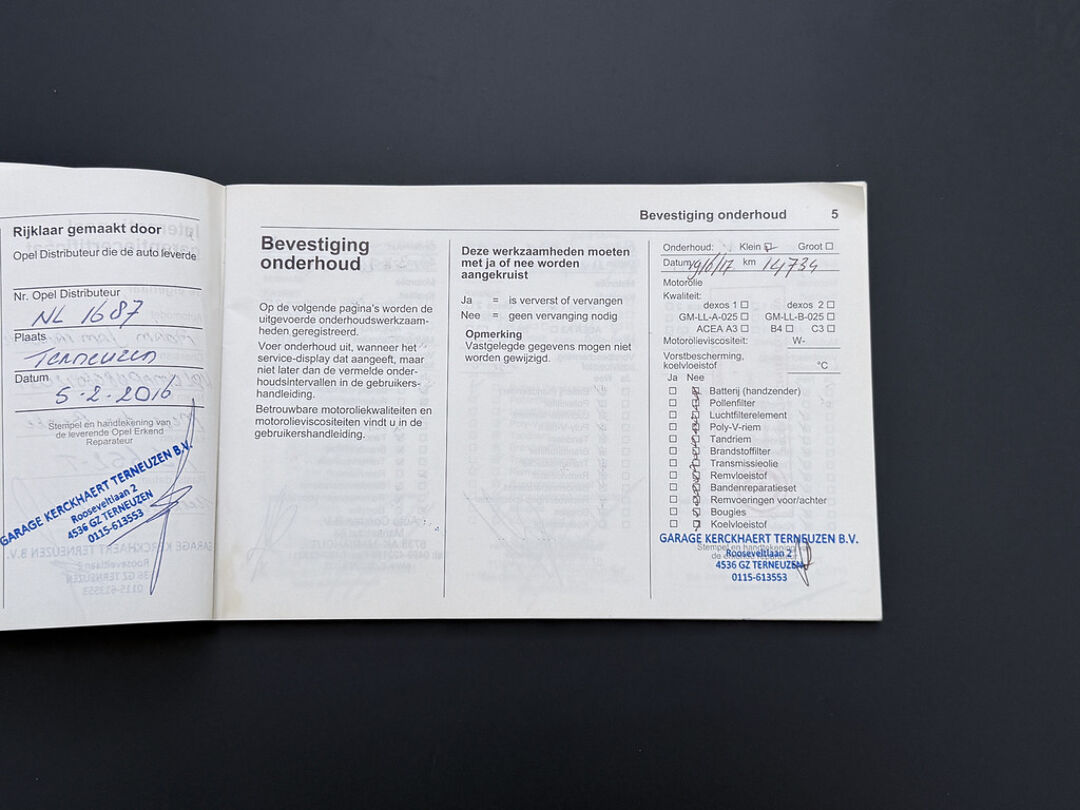 Rijklaar gemaakt door
Opel Distributeur die de auto leverde
Nr. Opel Distributeur
NL 1687
Plaats
Terneuzen
Datum
5-2-2016
Stempel en handtekening van
de leverende Opel Erkend
Reparateur
GARAGE KERCKHAERT TERNEUZEN B.V.
Rooseveltlaan 2
4536 GZ TERNEUZEN
0115-613553
Bevestiging onderhoud 5
Bevestiging
onderhoud
Op de volgende pagina's worden de
uitgevoerde onderhoudswerkzaam-
heden geregistreerd.
Voer onderhoud uit, wanneer het
service-display dat aangeeft, maar
niet later dan de vermelde onder-
houdsintervallen in de gebruikers-
handleiding.
Betrouwbare motoroliekwaliteiten en
motorolieviscositeiten vindt u in de
gebruikershandleiding.
Deze werkzaamheden moeten
met ja of nee worden
aangekruist
Ja = is ververst of vervangen
Nee = geen vervanging nodig
Opmerking
Vastgelegde gegevens mogen niet
worden gewijzigd.
Onderhoud: Klein Groot
Datum km 14734
Motorolie
Kwaliteit:
dexos 1 dexos 2
GM-LL-A-025 GM-LL-B-025
ACEA A3 B4 C3
Motorolieviscositeit: W-
Vorstbescherming,
koelvloeistof °C
Ja Nee
Batterij (handzender)
Pollenfilter
Luchtfilterelement
Poly-V-riem
Tandriem
Brandstoffilter
Transmissieolie
Remvloeistof
Bandenreparatieset
Remvoeringen voor/achter
Bougies
Koelvloeistof
GARAGE KERCKHAERT TERNEUZEN B.V.
Stempel en handtekening van
Rooseveltlaan 2
4536 GZ TERNEUZEN
0115-613553